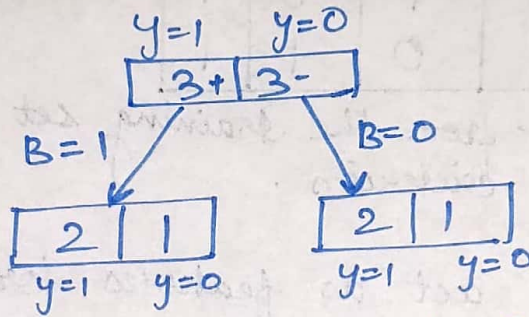 y=1 y=0
3+ 3-
B=1 B=0
2 1 2 1
y=1 y=0 y=1 y=0